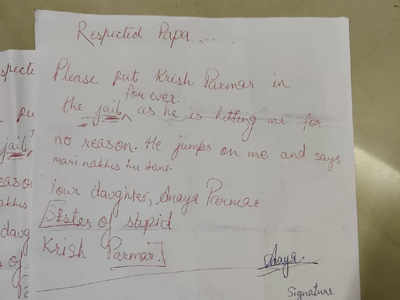 Respected Papa....
Please put Krish Parmar in
for ever
the jail, as he is hitting me for
no reason. He jumps on me and says
mari nakhis hu tane.
your daughter, Anaya Parmar
Sister of stupid
Krish Parmar.
Anaya
Signature